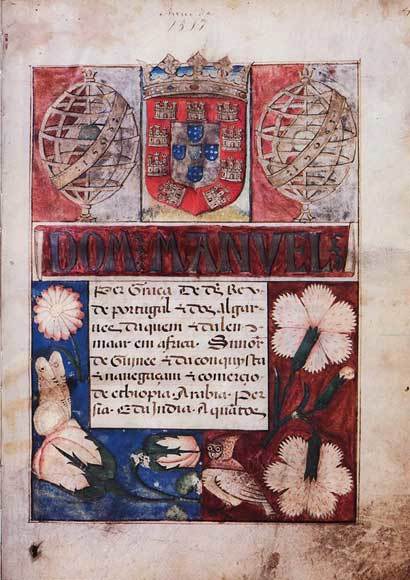 DOM: MANVEL:
Per Graça De ds Rey
de portugal & dos algar
ues daquem & dalem
maar em africa. Sñnor
de Guinee & da conquysta
& nauegaçam & comercio
de ethiopia. Arabia. Per
sia. & da India. A quātos